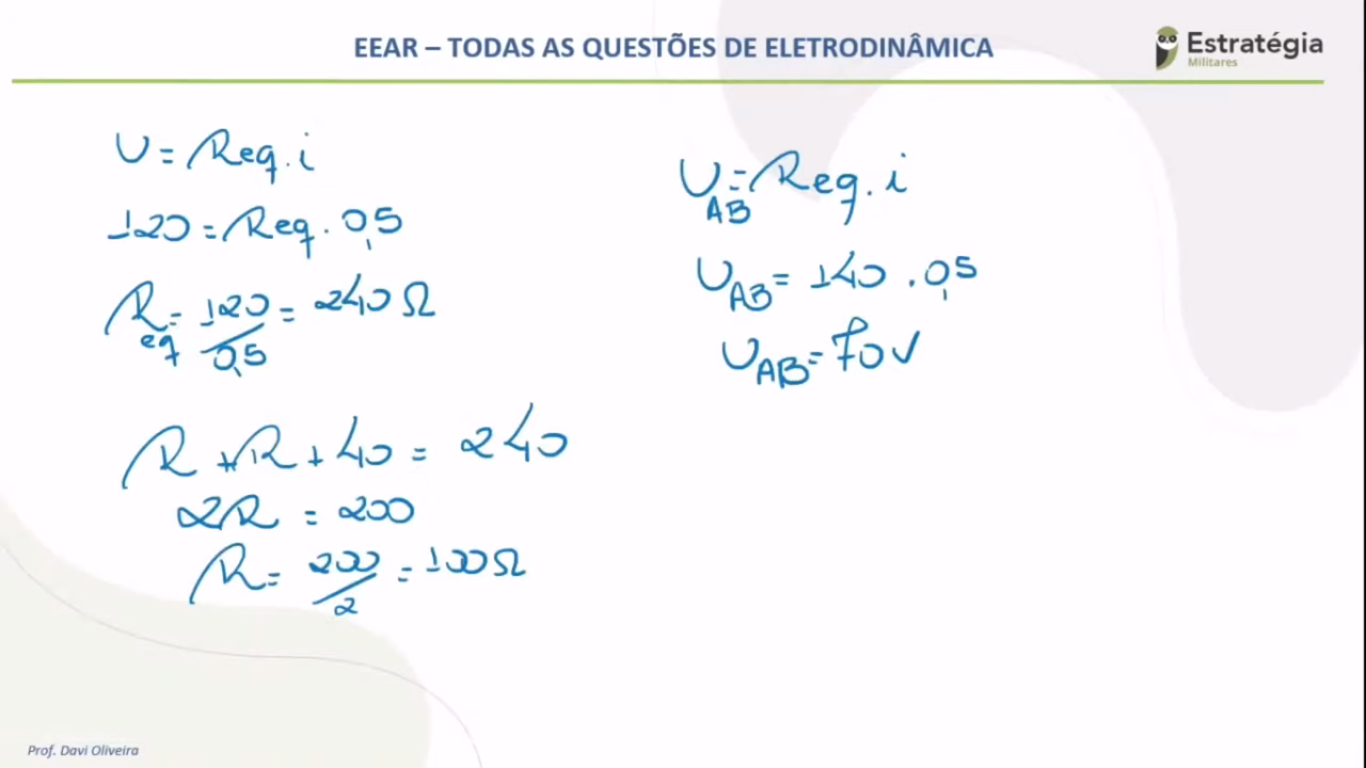 EEAR – TODAS AS QUESTÕES DE ELETRODINÂMICA
Estratégia
Militares
U = Req. i
120 = Req. 0,5
Req = 120/0,5 = 240 Ω
R + R + 40 = 240
2R = 200
R = 200/2 = 100 Ω
U_AB = Req. i
U_AB = 140 . 0,5
U_AB = 70 V
Prof. Davi Oliveira